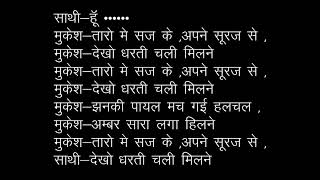 साथी–हूॅं ••••••
मुकेश–तारो मे सज के ,अपने सूरज से ,
मुकेश–देखो धरती चली मिलने
मुकेश–तारो मे सज के ,अपने सूरज से ,
मुकेश–देखो धरती चली मिलने
मुकेश–झनकी पायल मच गई हलचल ,
मुकेश–अम्बर सारा लगा हिलने
मुकेश–तारो मे सज के ,अपने सूरज से ,
साथी–देखो धरती चली मिलने